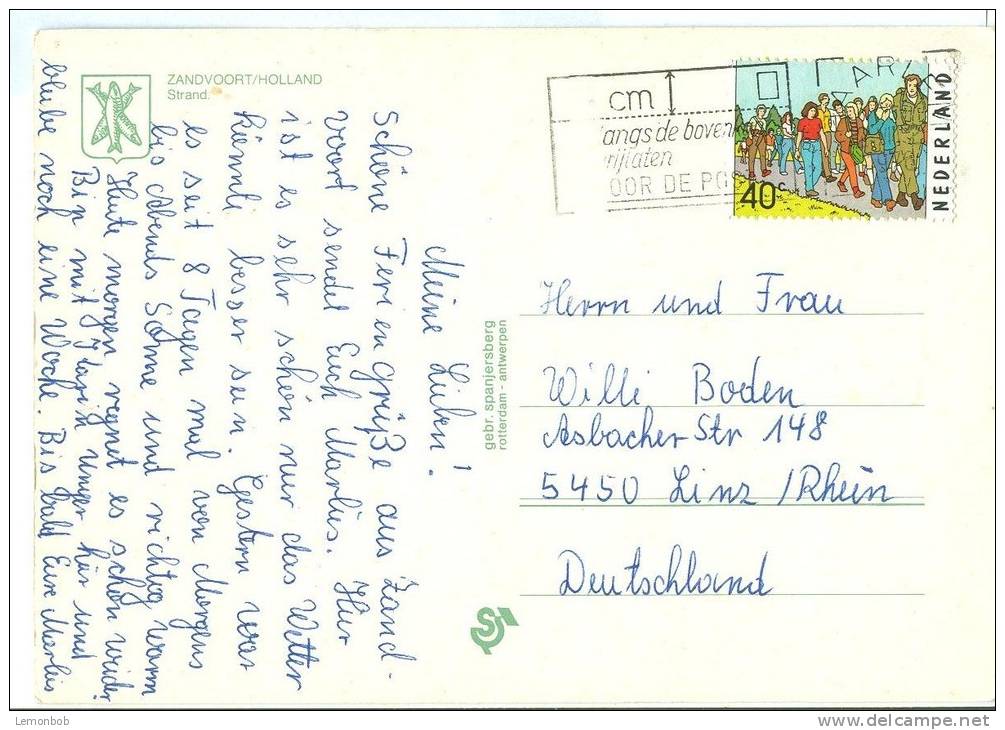 ZANDVOORT/HOLLAND
Strand.
Meine Lieben!
Schöne Feriengrüße aus Zand-
voort sendet Euch Marlies. Hier
ist es sehr schön nur das Wetter
könnte besser sein. Gestern war
es seit 8 Tagen mal von Morgens
bis Abends Sonne und richtig warm
Heute morgen regnet es schon wieder
Bin mit hier und
bleibe noch eine Woche. Bis bald Eure Marlies
gebr. spanjersberg
rotterdam - antwerpen
cm
angs de boven
rijlaten
OOR DE PO
40c
NEDERLAND
Herrn und Frau
Willi Boden
Asbacher Str 148
5450 Linz /Rhein
Deutschland
Lemonbob
delcampe.net